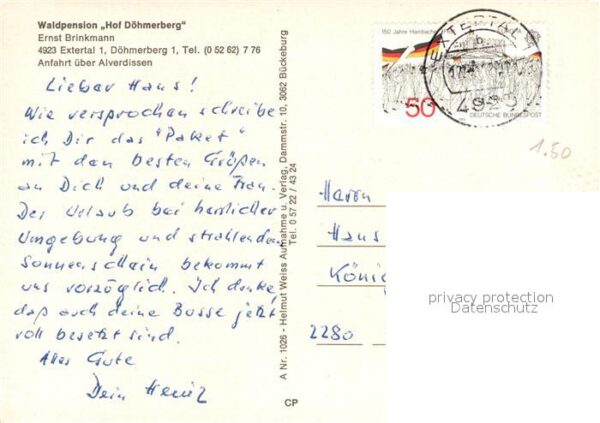 Waldpension „Hof Döhmerberg"
Ernst Brinkmann
4923 Extertal 1, Döhmerberg 1, Tel. (0 52 62) 7 76
Anfahrt über Alverdissen
Lieber Hans!
Wie versprochen schreibe
ich Dir das "Paket"
mit den besten Grüßen
an Dich und deine Frau.
Der Urlaub bei herrlicher
Umgebung und strahlenden
Sonnenschein bekommt
uns vorzüglich. Ich denke,
daß auch deine Busse jetzt
voll besetzt sind.
Alles Gute
Dein Heinz
A Nr. 1026 - Helmut Weiss Aufnahme u. Verlag, Dammstr. 10, 3062 Bückeburg
Tel. 0 57 22 / 43 24
CP
150 Jahre Hambacher
50
DEUTSCHE BUNDESPOST
EXTERTAL
b
4923
1.50
Herrn
Hans
König
2280
privacy protection
Datenschutz